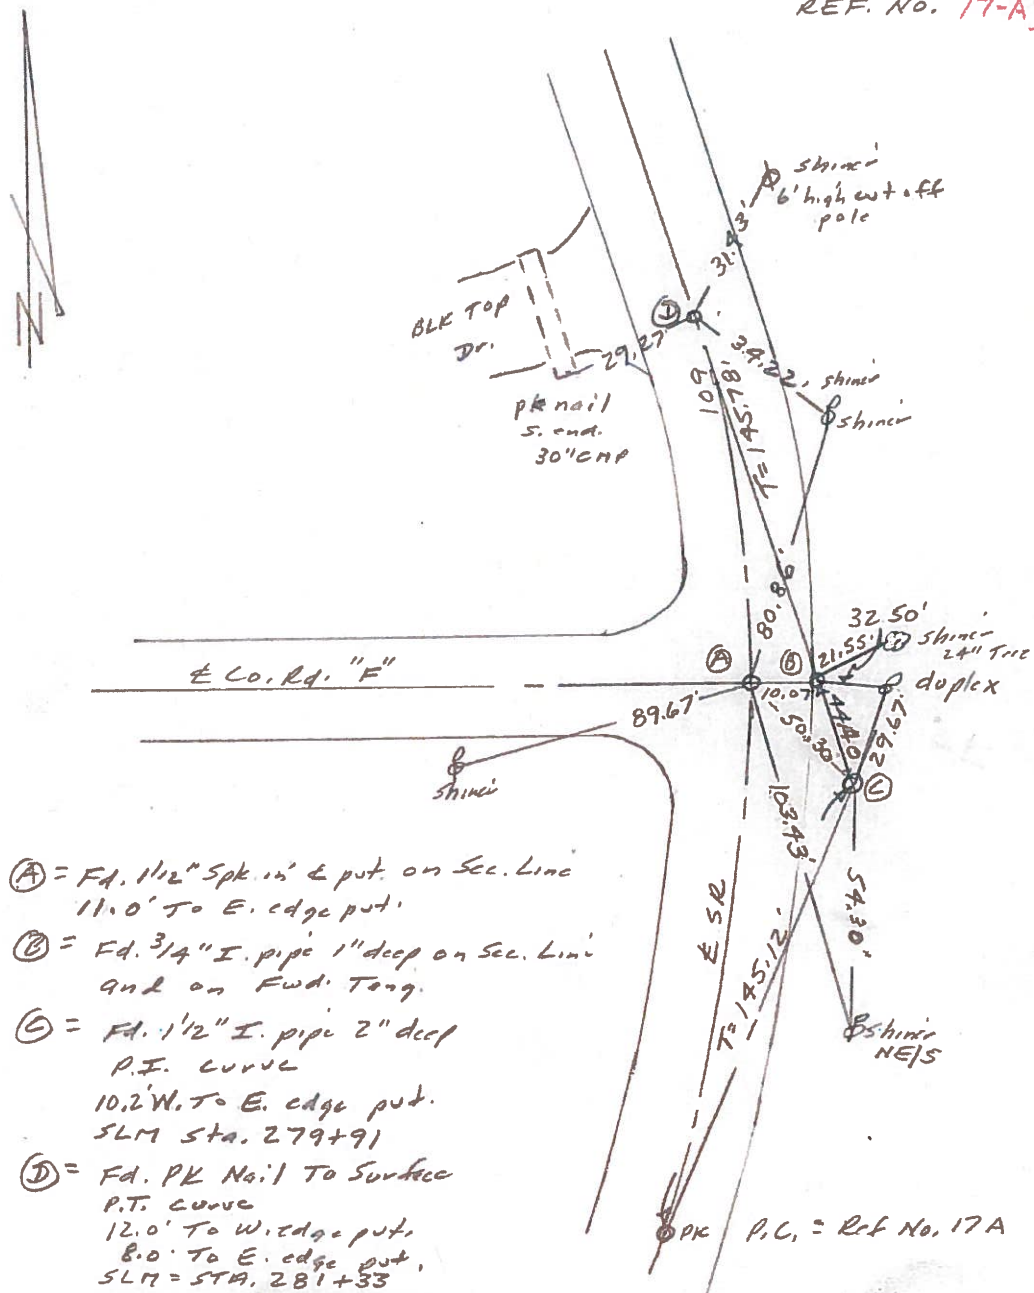 REF. No. 17-A
N
shiner
6' high cut off
pole
31.3'
BLK TOP
Dr.
D
29.27'
34.22'
shiner
shiner
pk nail
S. end.
30" CMP
109
T=145.78'
80.8
32.50'
21.55'
shiner
24" Tree
℄ Co. Rd. "F"
A
B
duplex
10.07
89.67'
50.30
44.40
29.67'
C
shiner
103.43'
54.30'
℄ SR
T=145.12'
shiner
NE/S
PK
P.C. = Ref No. 17A
A = Fd. 1 1/2" Spk in ℄ pvt. on Sec. Line
11.0' To E. edge pvt.
B = Fd. 3/4" I. pipe 1" deep on Sec. Line
and on Fwd. Tang.
C = Fd. 1 1/2" I. pipe 2" deep
P.I. curve
10.2' W. To E. edge pvt.
SLM Sta. 279+91
D = Fd. PK Nail To Surface
P.T. curve
12.0' To W. edge pvt.
8.0' To E. edge pvt.
SLM = STA. 281+33